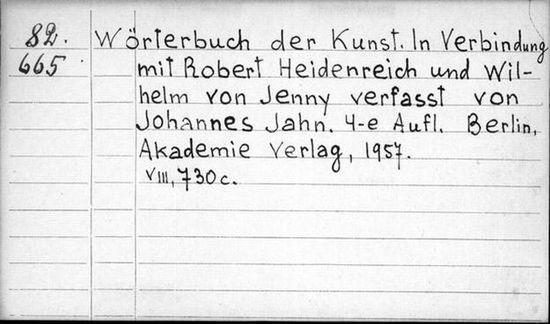 82. Wörterbuch der Kunst. In Verbindung
665 mit Robert Heidenreich und Wil-
helm von Jenny verfasst von
Johannes Jahn. 4-e Aufl. Berlin,
Akademie Verlag, 1957.
VIII, 730 c.